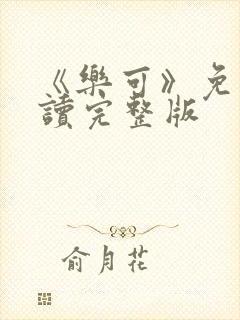 《樂可》免
讀完整版
俞月花